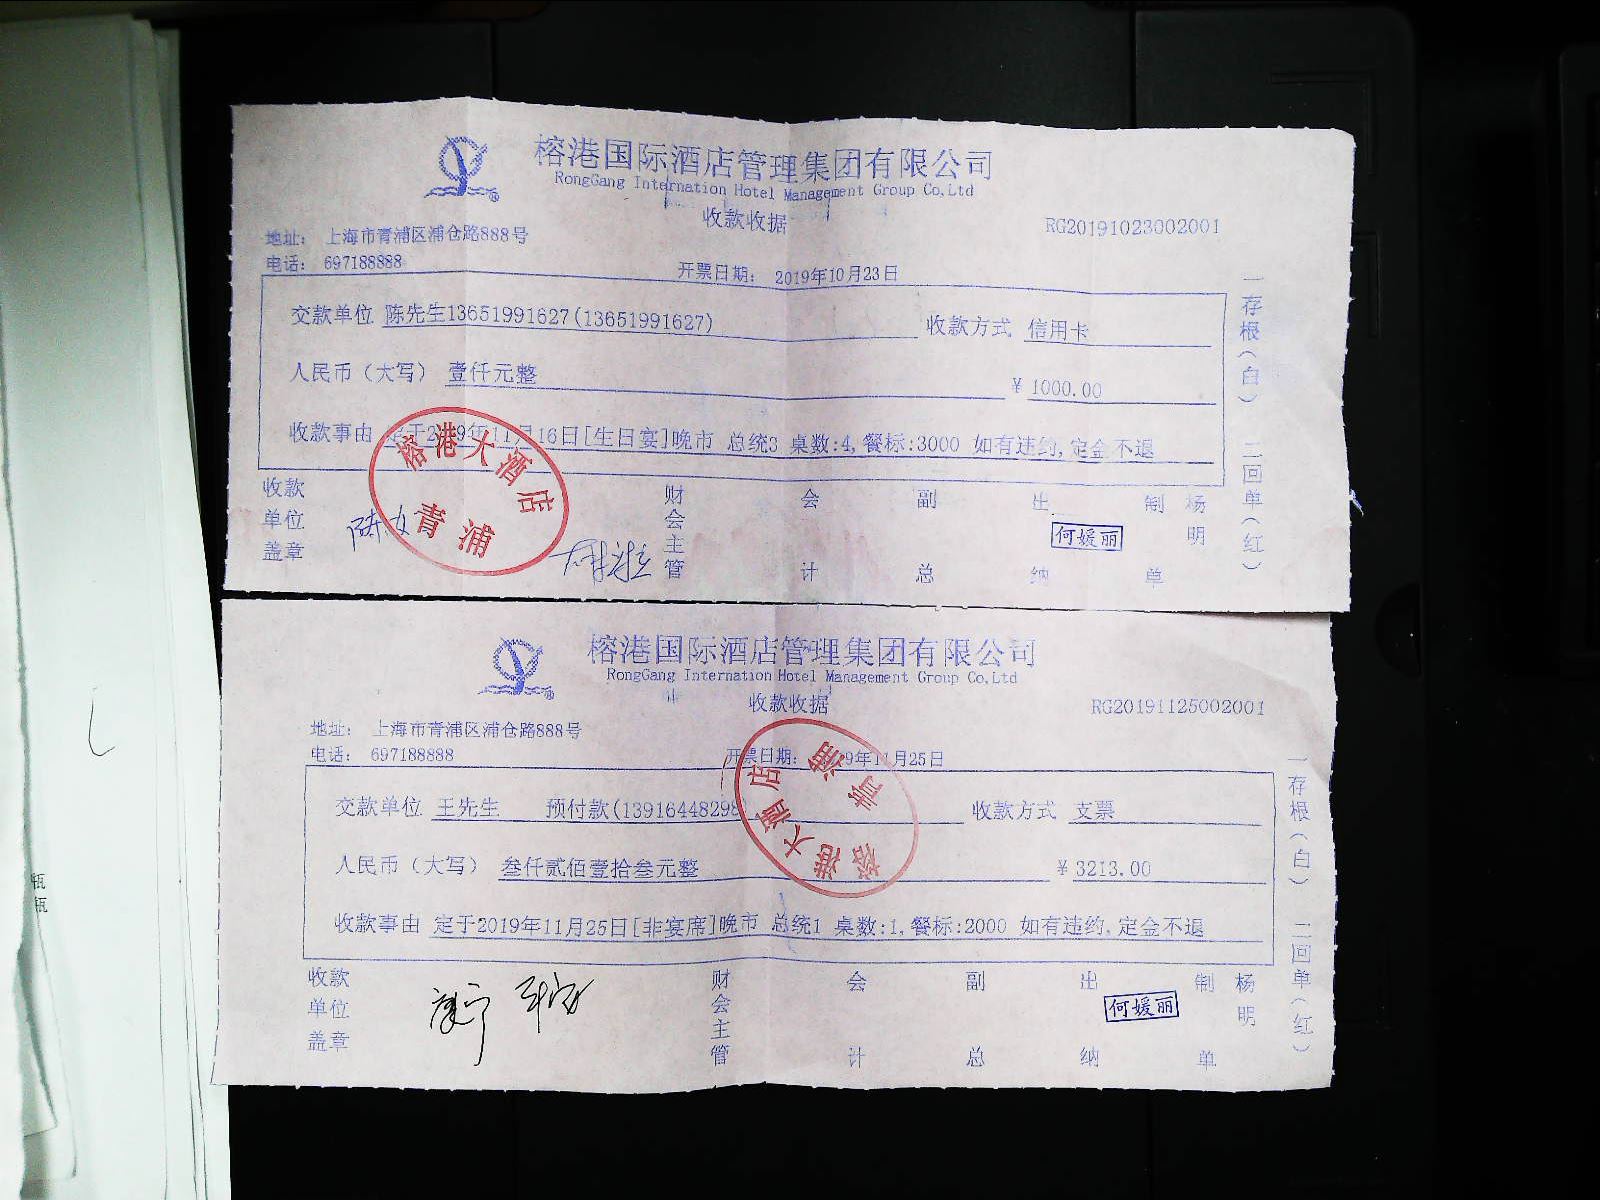 榕港国际酒店管理集团有限公司
RongGang Internation Hotel Management Group Co,Ltd
收款收据
RG20191023002001
地址: 上海市青浦区浦仓路888号
电话: 697188888
开票日期: 2019年10月23日
交款单位 陈先生13651991627(13651991627) 收款方式 信用卡
人民币(大写) 壹仟元整 ¥ 1000.00
收款事由 定于2019年11月16日[生日宴]晚市 总统3 桌数:4,餐标:3000 如有违约,定金不退
榕港大酒店
青浦
收款单位盖章 财会主管 会计 副总 出纳 何媛丽 制单 杨明
存根(白) 二回单(红)
榕港国际酒店管理集团有限公司
RongGang Internation Hotel Management Group Co,Ltd
收款收据
RG20191125002001
地址: 上海市青浦区浦仓路888号
电话: 697188888
开票日期: 2019年11月25日
交款单位 王先生 预付款(13916448298 收款方式 支票
人民币(大写) 叁仟贰佰壹拾叁元整 ¥ 3213.00
收款事由 定于2019年11月25日[非宴席]晚市 总统1 桌数:1,餐标:2000 如有违约,定金不退
榕港大酒店
青浦
收款单位盖章 财会主管 会计 副总 出纳 何媛丽 制单 杨明
一存根(白) 二回单(红)
瓶
瓶